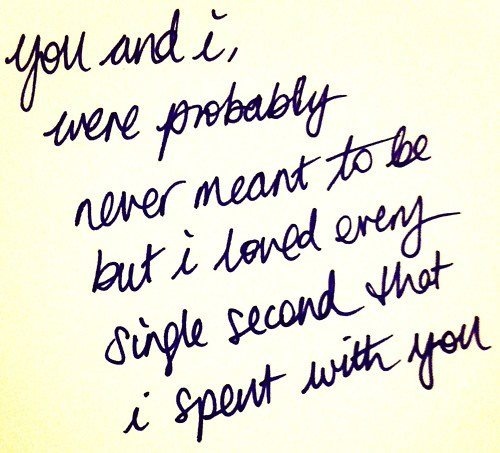 you and i,
were probably
never meant to be
but i loved every
single second that
i spent with you